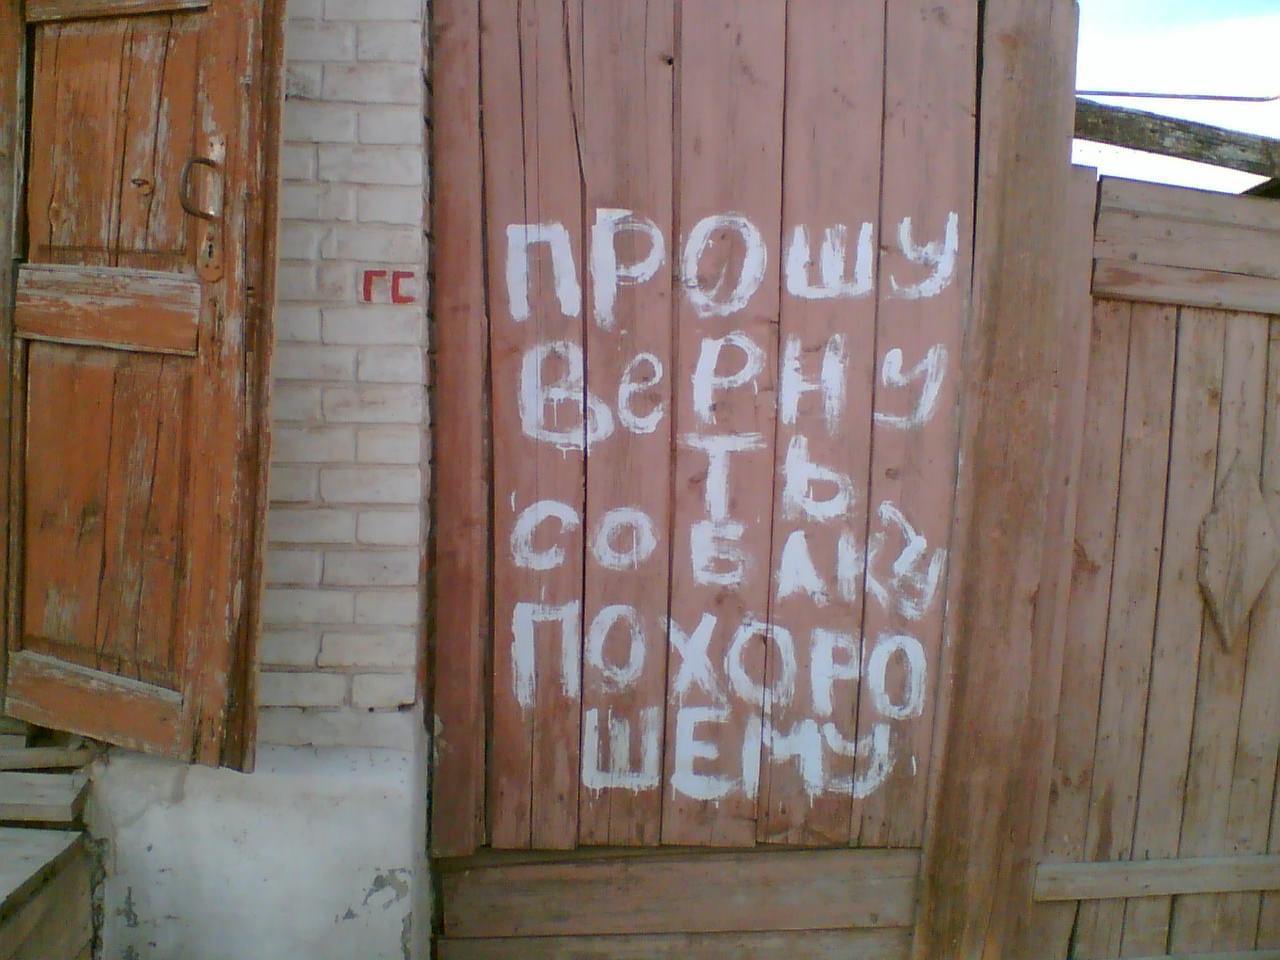 ГС
ПРОШУ
Верну
ТЬ
СОБАКУ
ПОХОРО
ШЕМУ